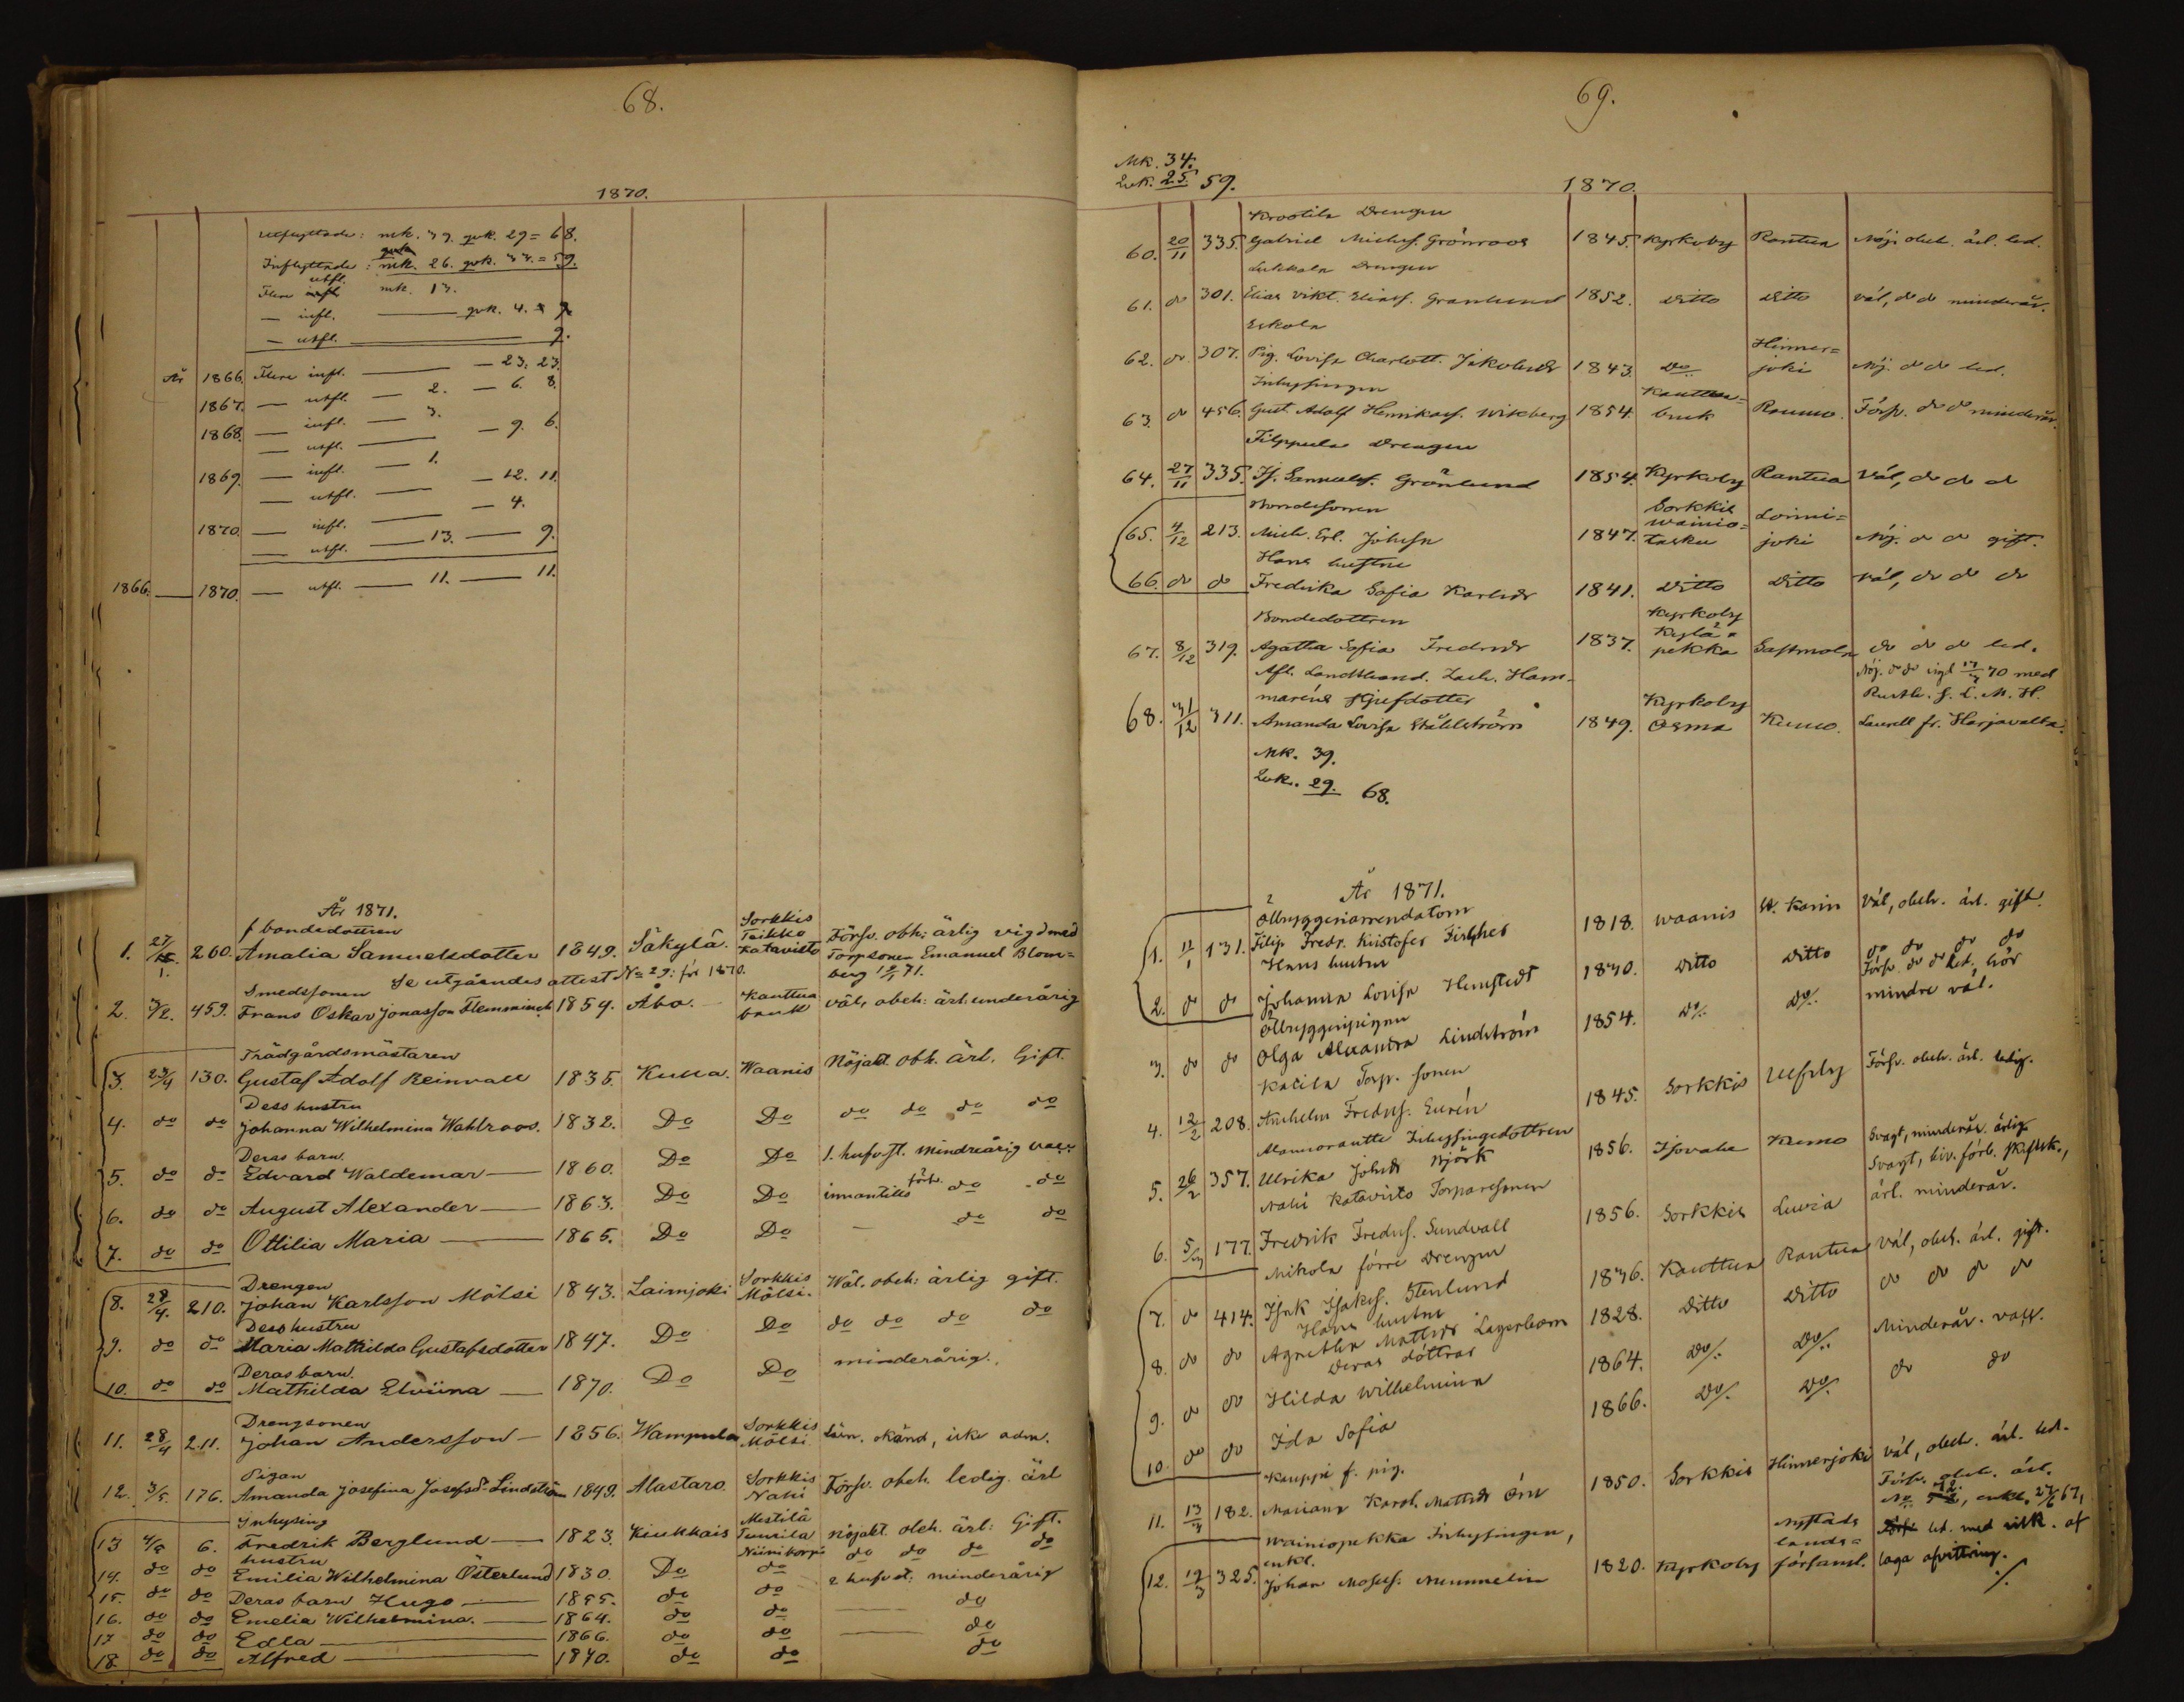 68.
1870.
Utflyttade: mk. 39. qvk. 29 = 68.
Inflyttade: mk. 26. qvk. 33. = 59.
Flere utfl. mk. 13.
— infl. — qvk. 4.
— utfl. — 9.
År 1866. Flere infl. — 23. 23.
1867. — utfl. — 2. — 6. 8.
1868. — infl. — 3.
— utfl. — 9. 6.
1869. — infl. — 1.
— utfl. — 12. 11.
1870. — infl. — 4.
— utfl. — 13. — 9.
1866. — 1870. — utfl. — 11. — 11.
År 1871.
f bondedottren Sorkkis
1. 27/1. 260. Amalia Samuelsdotter 1849. Säkylä. Teikko Katavisto Förfv. obh: ärlig vigd med
Torpsonen Emanuel Blom=
Se utgåendes attest No 29: för 1870. berg 71.
Smedssonen
2. 3/2. 459. Frans Oskar Jonasson Flemminch 1854. Åbo. Kauttua bruk väl, obeh: ärl. underårig
Trädgårdsmästaren
3. 23/4 130. Gustaf Adolf Reinvall 1835. Kulla. Waanis Nöjakt. obh. ärl. Gift.
Dess hustru
4. do do Johanna Wilhelmina Wahlroos. 1832. Do Do do do do do
Deras barn
5. do do Edvard Waldemar — 1860. Do Do 1. hufvst. mindreårig vacc.
6. do do August Alexander — 1863. Do Do innantills förs. do do
7. do do Ottilia Maria — 1865. Do Do — do do
Drengen
8. 28/4. 210. Johan Karlsson Mölsi 1843. Loimjoki Sorkkis Mölsi. Wäl. obeh: ärlig gift.
Dess hustru
9. do do Maria Mathilda Gustafsdotter 1847. Do Do do do do do
Deras barn.
10. do do Mathilda Elviina — 1870. Do Do minderårig.
Drengsonen
11. 28/4 211. Johan Andersson — 1856. Wampula Sorkkis Mölsi. okänd, icke adm.
Pigan
12. 3/5. 176. Amanda Josefina Josefsdr Lindström 1849. Alastaro. Sorkkis Nahi Förfv. obeh. ledig. ärl
Inhysing Mestilä
13 4/5 6. Fredrik Berglund — 1823. Kiukkais Tuurila nöjakt. obeh. ärl: Gift.
hustru Niinitorp
14. do do Emilia Wilhelmina Österlund 1830. Do do do do do do
15. do do Deras barn Hugo — 1855. do do 2 hufvst: minderårig
16. do do Emelia Wilhelmina. — 1864. do do — do
17 do do Edla — 1866. do do — do
18. do do Alfred — 1870. do do do
69.
Mk. 34.
Qvk. 25. 59.
1870.
Krootila Drengen
60. 20/11 335. Gabriel Michelsf. Grönroos 1845. Kyrkoby Rantua Nöj. obeh. ärl. led.
Lukkala Drengen
61. do 301. Elias Vikt. Eliasf. Granlund 1852. Ditto Ditto väl, do do minderår.
Eskola
62. do 307. Pig. Lovisa Charlott. Jakobsdr 1843. Do Hinner= joki Nöj. do do led.
Inhysingen
63. do 456. Gust. Adolf Henrikssf. Wikberg 1854. Kauttua= bruk Raumo. Förfv. do do minderår.
Filppula Drengen
64. 27/11 335. Js. Samuelsf. Grönlund 1854. Kyrkoby Rantua Väl, do do do
Bondesonen
65. 4/12 213. Mich. Erl. Johnsn 1847. Sorkkis wainio= tasku Loimi= joki Nöj. do do gift.
Hans hustru
66. do do Fredrika Sofia Karlsdr 1841. Ditto Ditto väl, do do do
Bondedottren
67. 8/12 319. Agatha Sofia Fredrsdr 1837. Kyrkoby Kylä= pekka Sastmola do do do led.
Afl. Landthand. Zach. Ham= Nöj. do do vigd 70 med
maréns styfdotter Rusth. f. L. M. H.
68. 31/12 311. Amanda Lovisa Ståhlström 1849. Kyrkoby Osma Kumo. Laurell fr. Harjavalta.
Mk. 39.
Qvk. 29. 68.
År 1871.
Ölbryggeriarrendatorn
1. 11/1 131. Filip Fredr. Kristofer Fischer 1818. Waanis St. Karin Väl, obeh. ärl. gift.
Hans hustru
2. do do Johanna Lovisa Hemstedt 1830. Ditto Ditto do do do do
Ölbryggeripigan
3. do do Olga Alexandra Lindström 1854. Do Do Förfv. do do led, hör mindre väl.
Katila Torp. sonen
4. 12/2 208. Anshelm Fredrsf. Eurén 1845. Sorkkis Ulfsby Förfv. obeh. ärl. ledig.
Inhysingedottren
5. 26/2 357. Ulrika Johnsdr Björk 1856. Kumo Svagt, minderår. ärlig
Nahi Katavisto Torparesonen Svagt, biv. förb. skriftsk.,
6. 5/3 177. Fredrik Fredrsf. Sundvall 1856. Sorkkis Luvia ärl. minderår.
Mikola förre Drengen
7. do 414. Isak Isaksf. Stenlund 1836. Kauttua Rantua Väl, obeh. ärl. gift.
Hans hustru
8. do do Agnetha Mattsdr Lagerbom 1828. Ditto Ditto do do do do
Deras döttrar
9. do do Hilda Wilhelmina 1864. Do Do Minderår. vacc.
10. do do Ida Sofia 1866. Do Do do do
Kauppi f. pig.
11. 13/3 182. Mariana Karol. Mattsdr Örn 1850. Sorkkis Hinnerjoki Väl, obeh. ärl. led.
Wainiopekka Inhysingen, Förfv. obeh. ärl.
enkl. Nystads lands= led. med vilk. af
12. 17/3 325. Johan Mosesf. Nummelin 1820. Kyrkoby församl. laga afvittring.